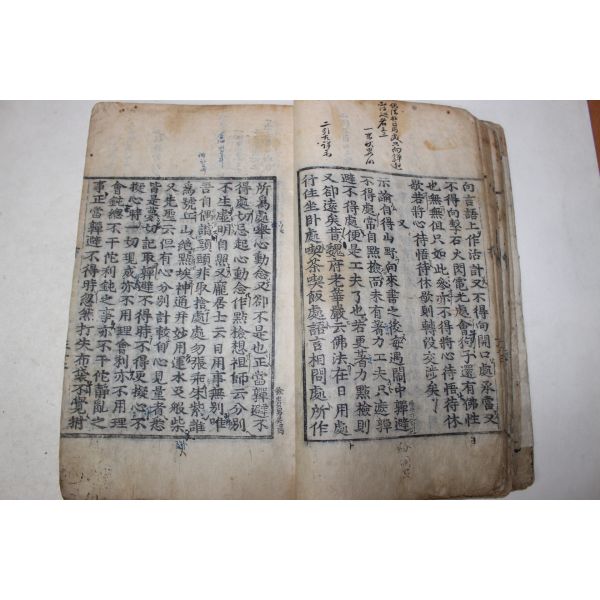 向言語上作活計又不得向開口處承當又
不得向擊石火閃電光處會狗子還有佛性
也無無但只如此參亦不得將心待悟待休
歇若將心待悟待休歇則轉沒交涉矣
又
示諭自得山野向來書之後每遇鬧中躱避
不得處常自點撿而未有著力工夫只遮躱
避不得處便是工夫了也若更著力點檢則
又却遠矣昔魏府老華嚴云佛法在日用處
行住坐臥處喫茶喫飯處語言相問處所作
所爲處擧心動念又却不是也正當躱避不
得處切忌起心動念作點檢想祖師云分別
不生虛明自照又龐居士云日用事無別唯
吾自偶諧頭頭非取捨處處勿張乖朱紫誰
爲號丘山絶點埃神通幷妙用運水及般柴
又先聖云但有心分別計較自心見量者悉
皆是夢切記取躱避不得時不得更擬心不
擬心時一切現成亦不用理會利亦不用理
會鈍總不干佗利鈍之事亦不干佗靜亂之
事正當躱避不得時忽然打失布袋不覺拊